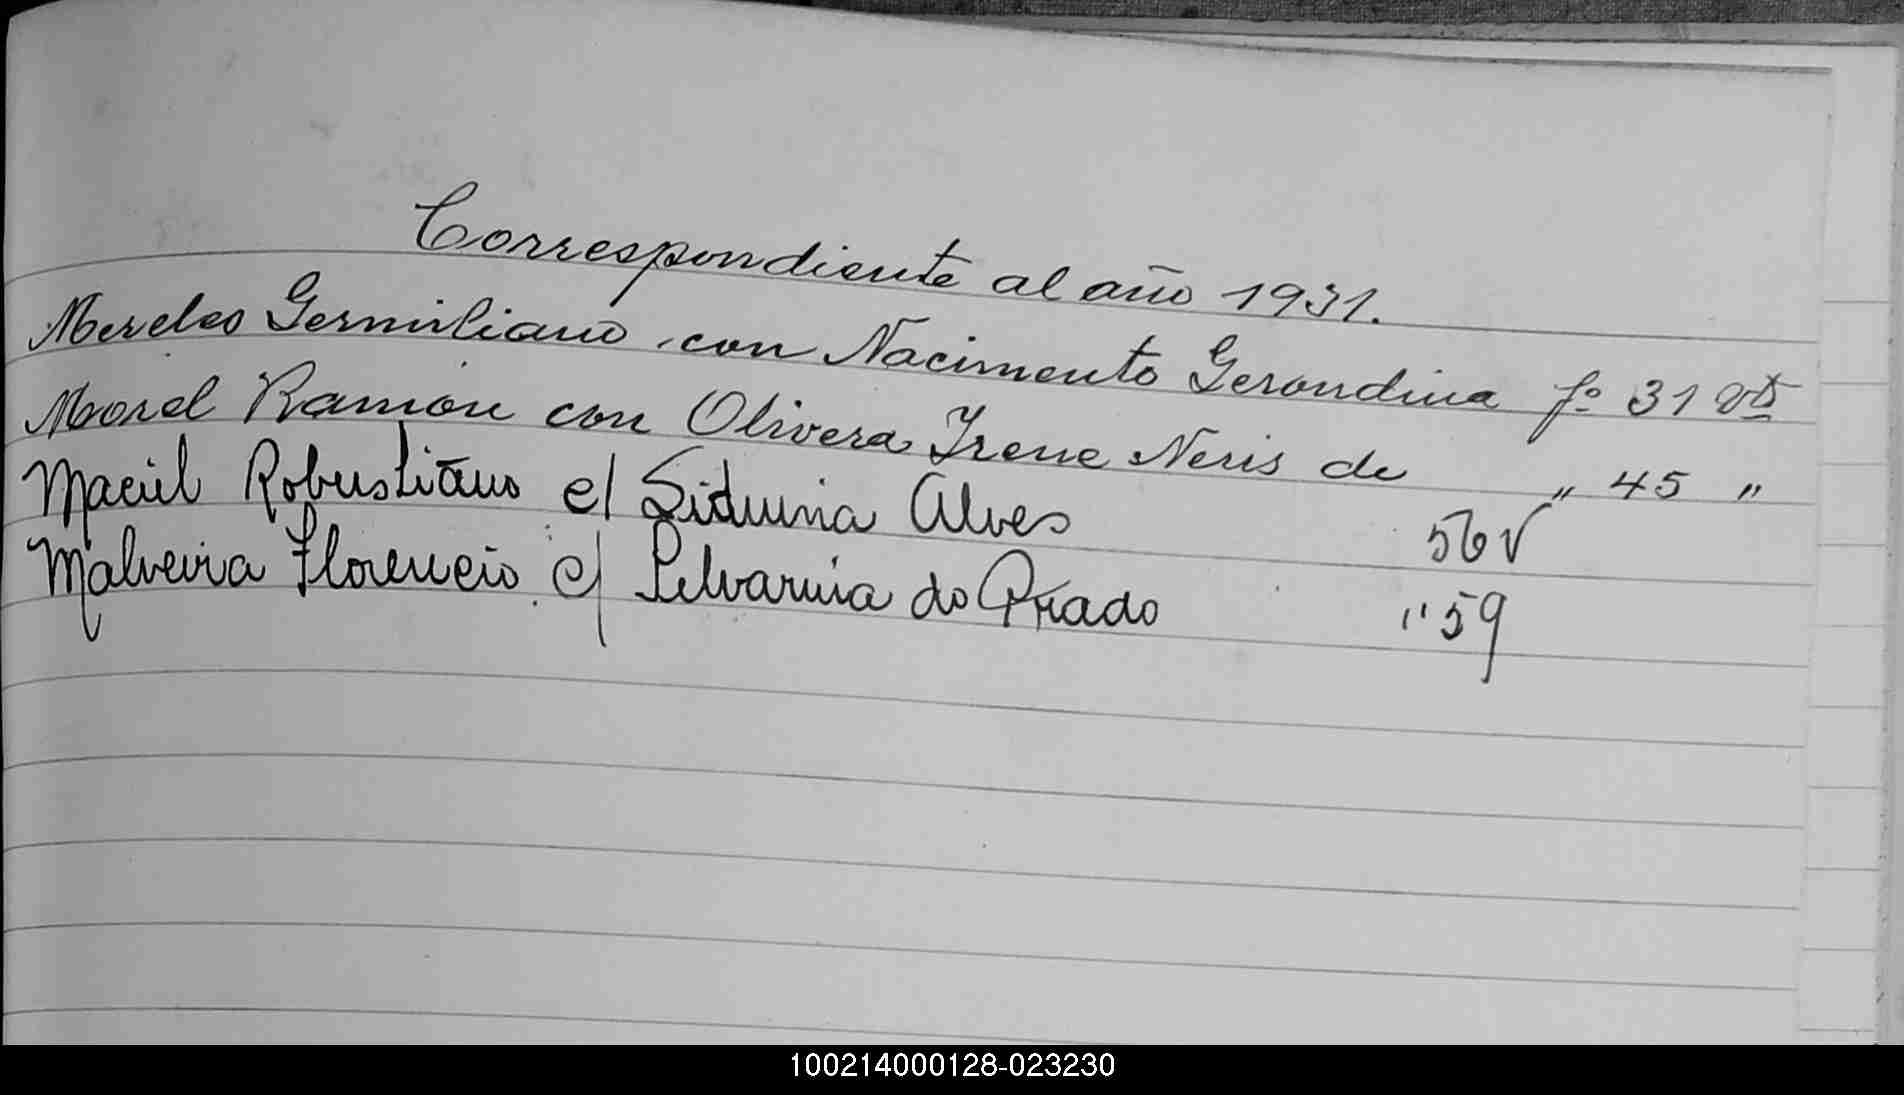 Correspondiente al año 1931.
Mereles Germiliano con Nacimento Gerondina fº 31 vta
Morel Ramón con Olivera Irene Neris de " 45 "
Maciel Robustiano c/ Alves 56v
Malveira Florencio c/ do Prado " 59
100214000128-023230